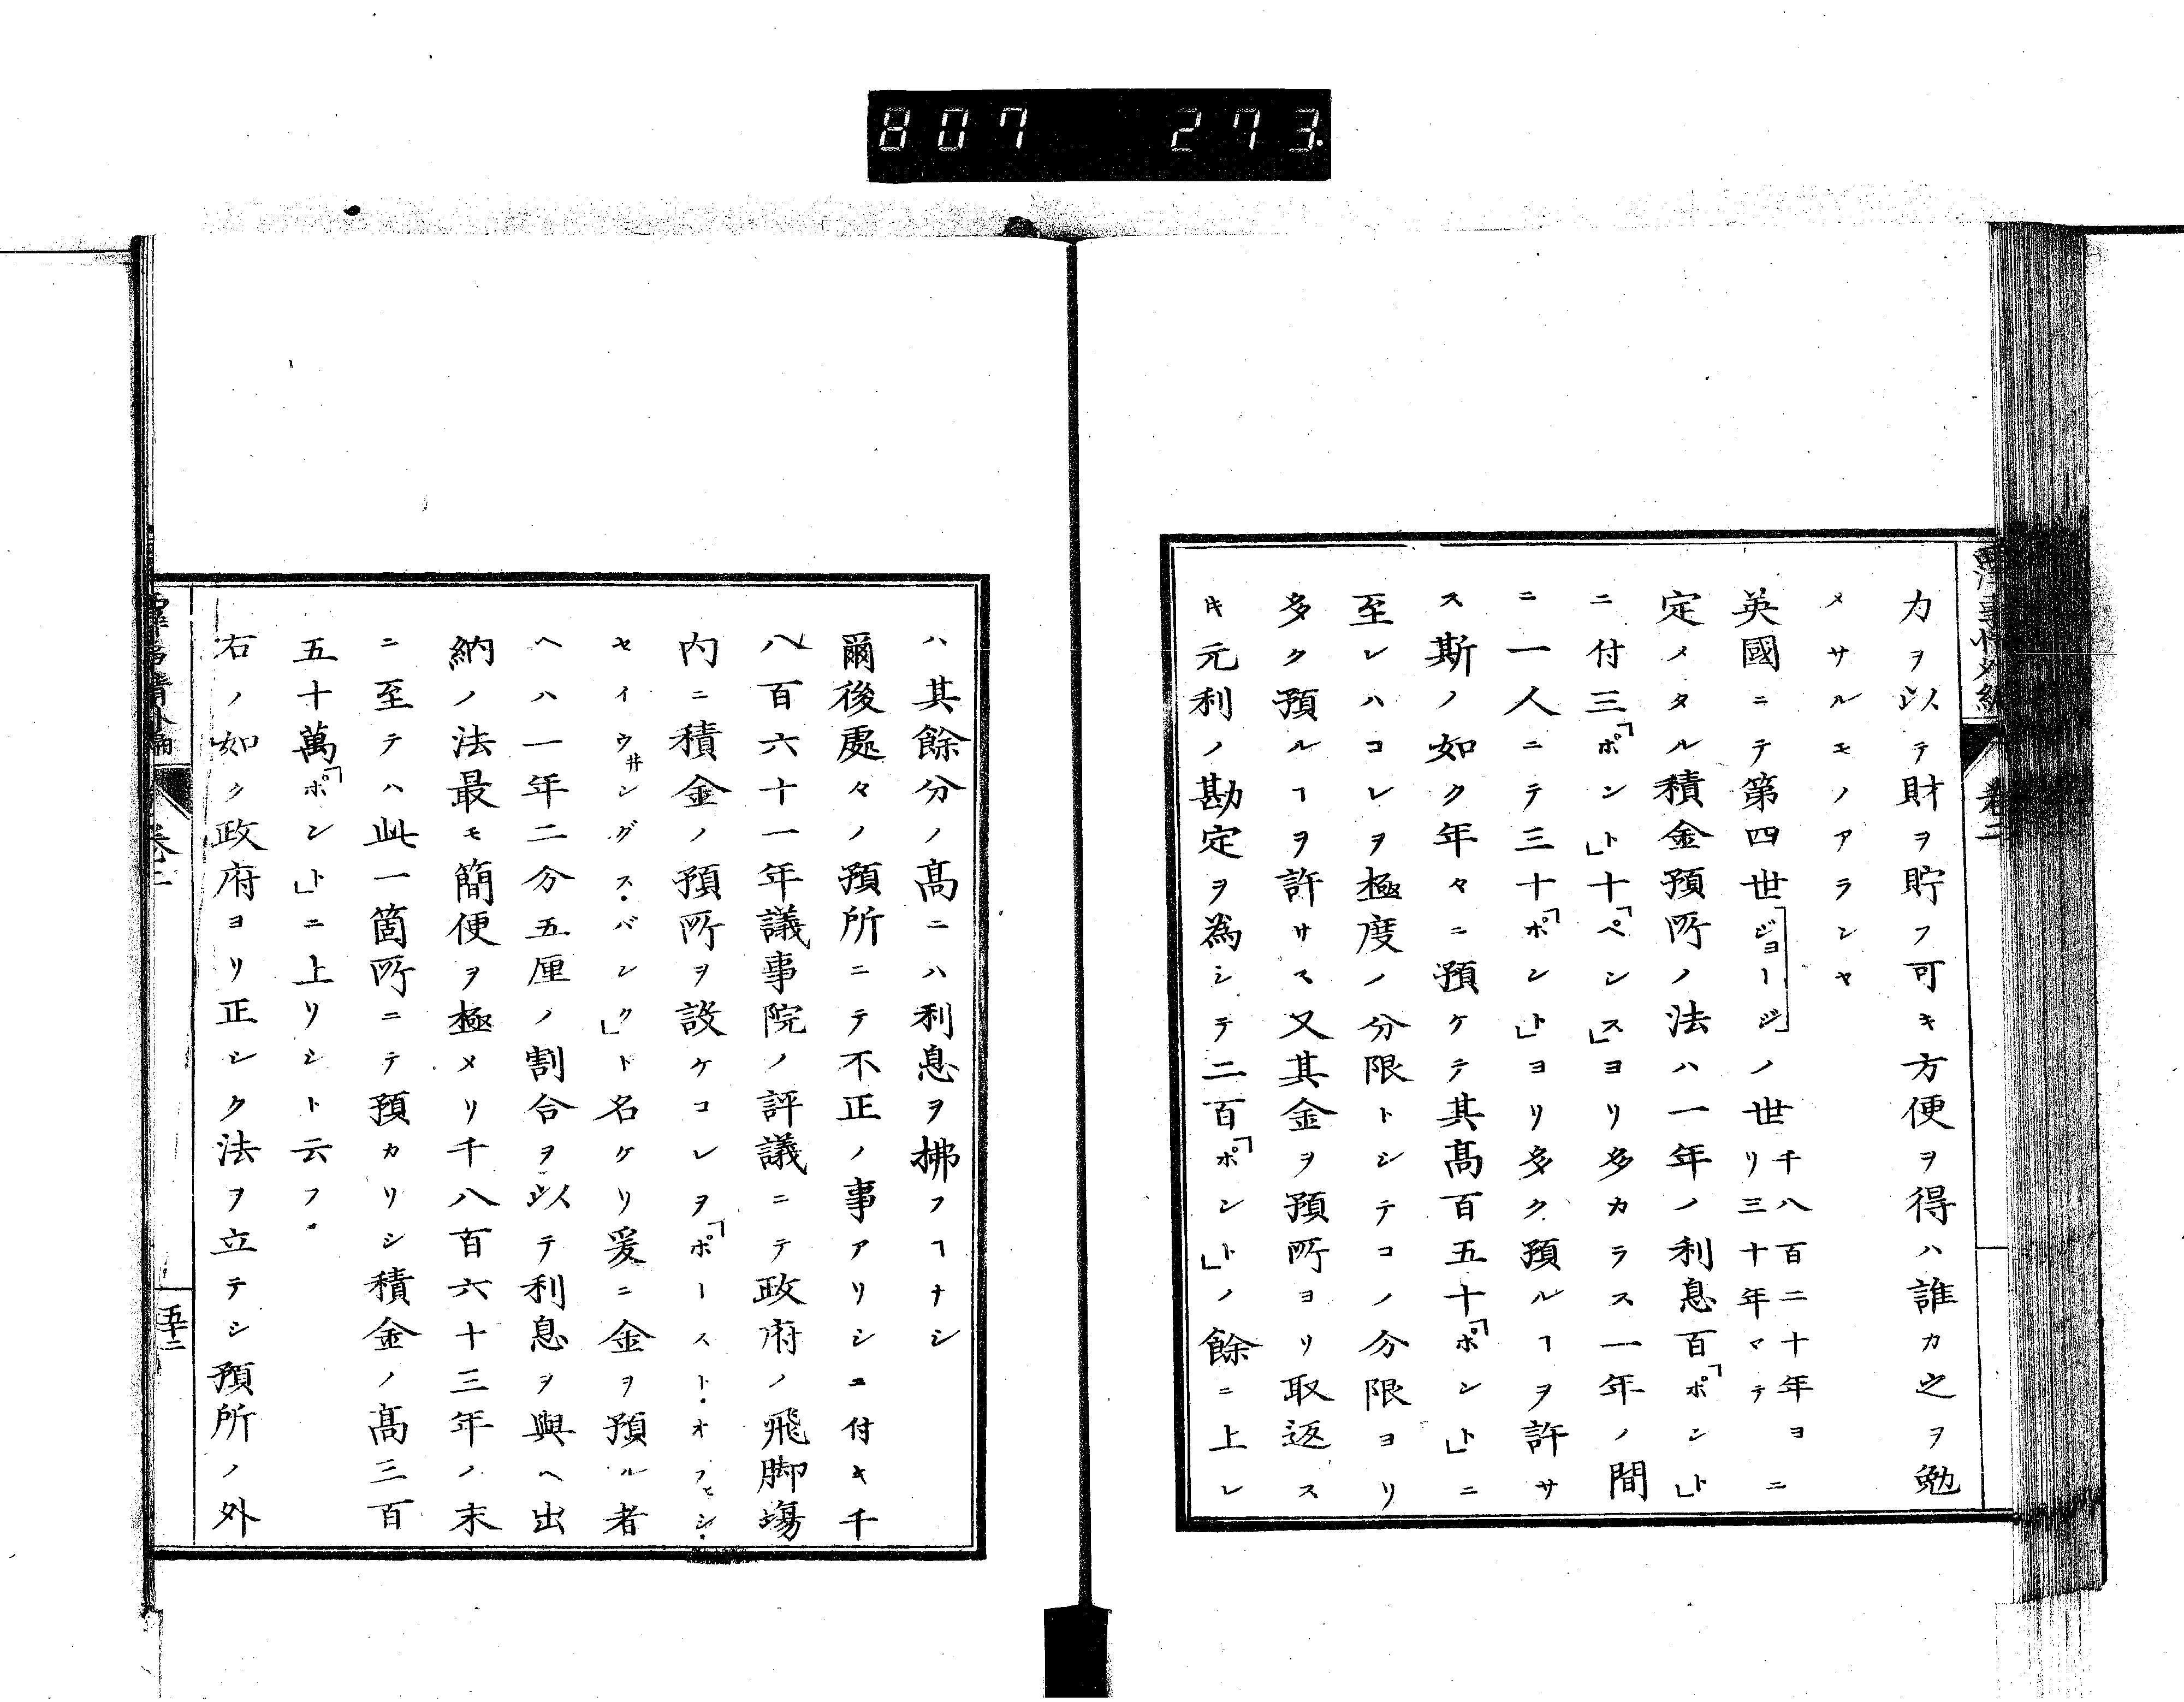 807 273
西洋事情外編 卷二
力ヲ以テ財ヲ貯フ可キ方便ヲ得ハ誰カ之ヲ勉
メサルモノアランヤ
英國ニテ第四世「ジョージ」ノ世千八百二十年ヨリ三十年マテニ
定メタル積金預所ノ法ハ一年ノ利息百「ポンド」
ニ付三「ポント」十「ペンス」ヨリ多カラス一年ノ間
ニ一人ニテ三十「ポント」ヨリ多ク預ルヿヲ許サ
ス斯ノ如ク年々ニ預ケテ其髙百五十「ポント」ニ
至レハコレヲ極度ノ分限トシテコノ分限ヨリ
多ク預ルヿヲ許サス又其金ヲ預所ヨリ取返ス
キ元利ノ勘定ヲ為シテ二百「ポント」ノ餘ニ上レ
ハ其餘分ノ髙ニハ利息ヲ拂フヿナシ
爾後處々ノ預所ニテ不正ノ事アリシニ付キ千
八百六十一年議事院ノ評議ニテ政府ノ飛脚塲
内ニ積金ノ預所ヲ設ケコレヲ「ポースト・オフヒシ・
セイウ井ングス・バンク」ト名ケリ爰ニ金ヲ預ル者
ヘハ一年二分五厘ノ割合ヲ以テ利息ヲ與ヘ出
納ノ法最モ簡便ヲ極メリ千八百六十三年ノ末
ニ至テハ此一箇所ニテ預カリシ積金ノ髙三百
五十萬「ポント」ニ上リシト云フ。
右ノ如ク政府ヨリ正シク法ヲ立テシ預所ノ外
西洋事情外編 卷二 五十二